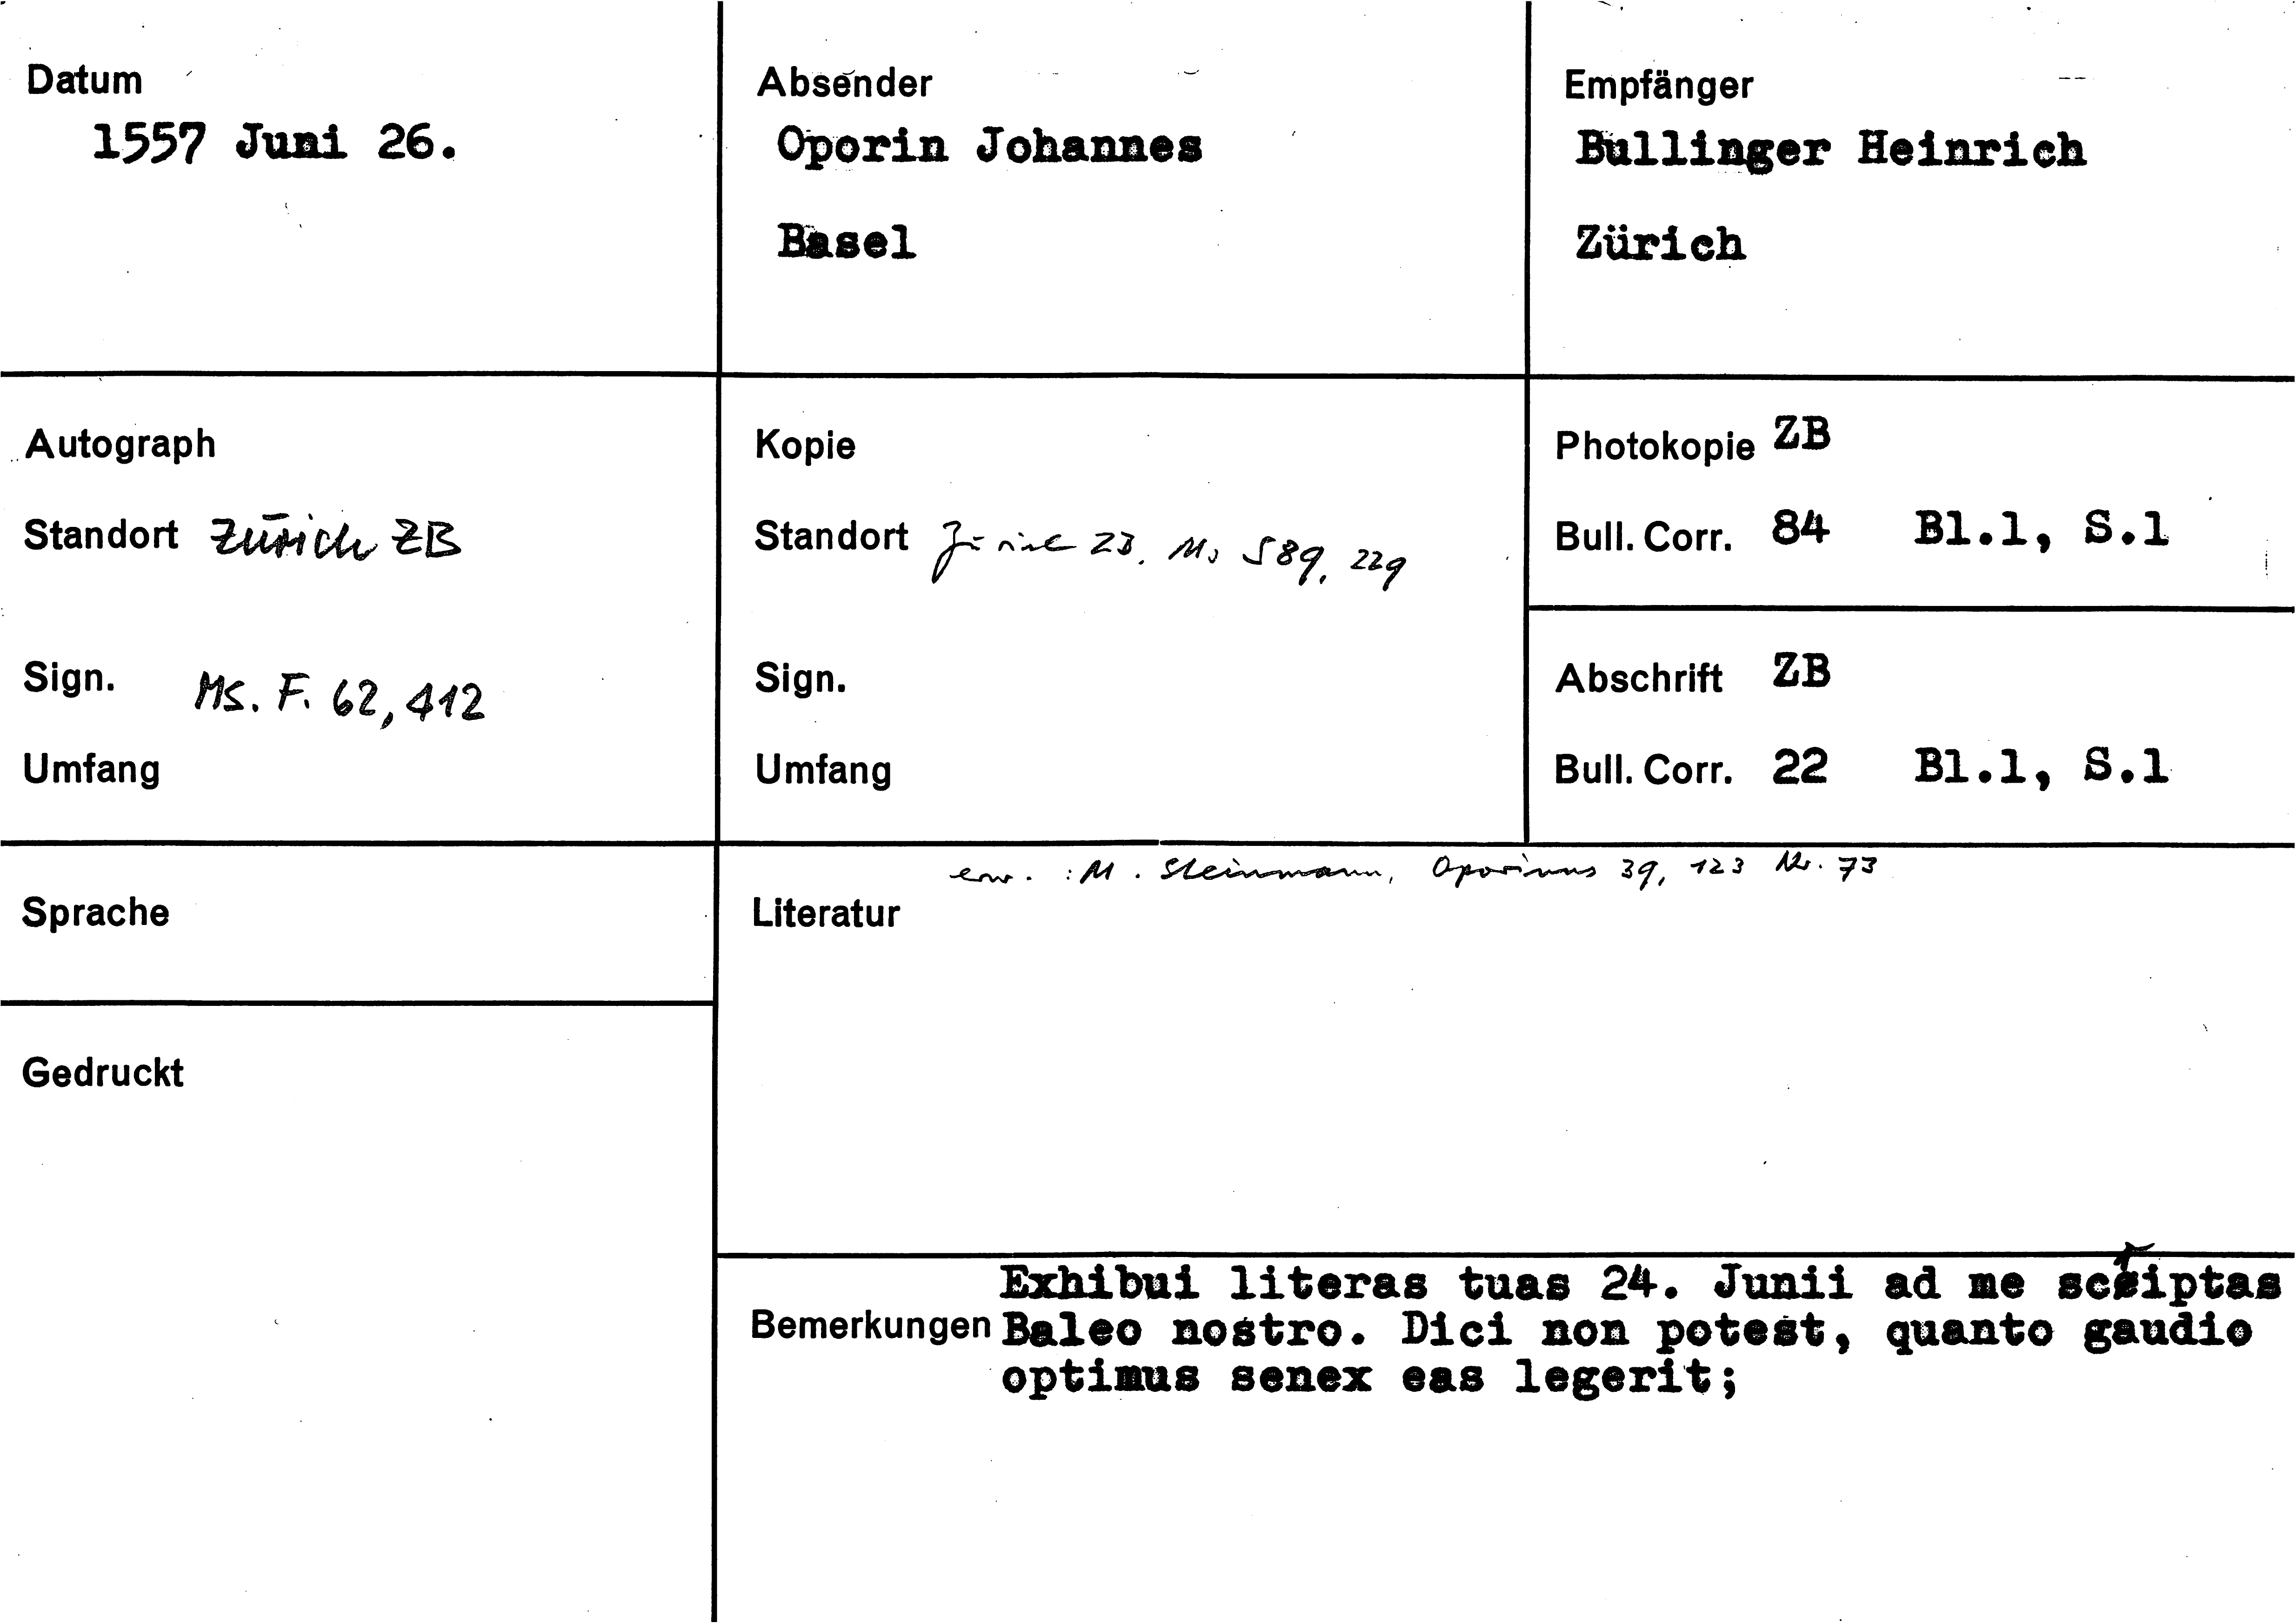 Datum
1557 Juni 26.
Absender
Oporin Johannes
Basel
Empfänger
Bullinger Heinrich
Zürich
Autograph
Standort Zürich ZB
Sign. MS. F. 62, 412
Umfang
Kopie
Standort Zürich ZB. Ms S 89, 229
Sign.
Umfang
Photokopie ZB
Bull. Corr. 84 Bl.1, S.1
Abschrift ZB
Bull. Corr. 22 Bl.1, S.1
Sprache
Gedruckt
erw. : M. Steinmann, Oporinus 39, 123 Nr. 73
Literatur
Exhibui literas tuas 24. Junii ad me scriptas
Bemerkungen Baleo nostro. Dici non potest, quanto gaudio
optimus senex eas legerit;